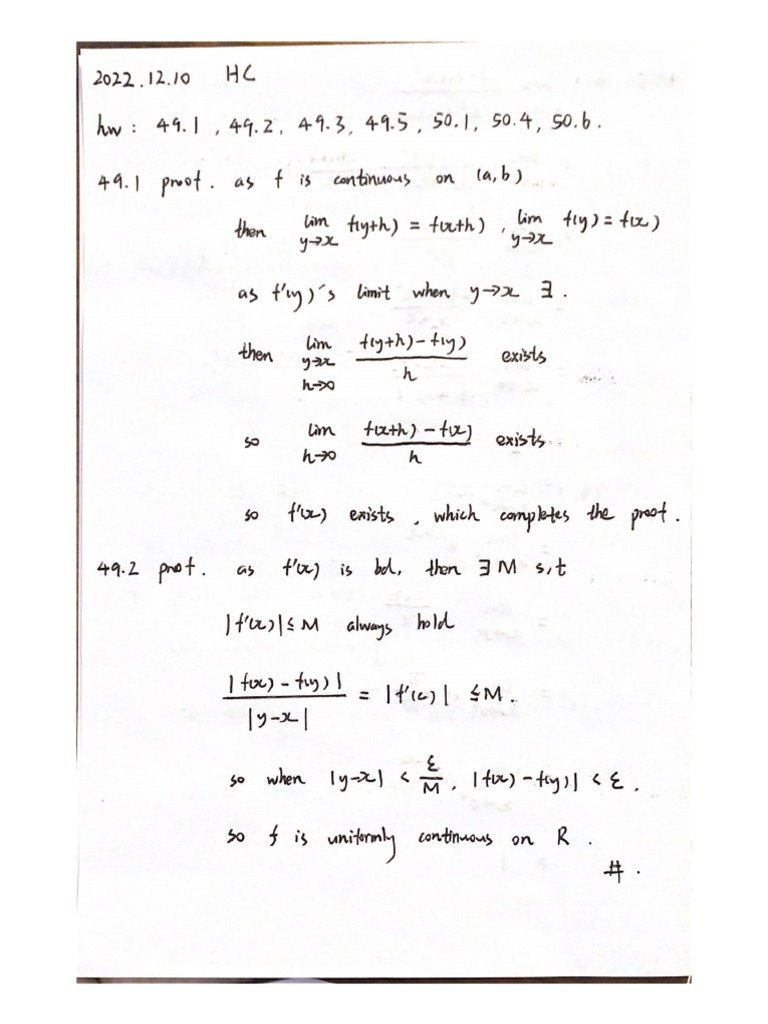 2022.12.10 HC
hw: 49.1, 49.2, 49.3, 49.5, 50.1, 50.4, 50.6.
49.1 proof. as f is continuous on (a,b)
then lim y→x f(y+h) = f(x+h), lim y→x f(y) = f(x)
as f'(y)'s limit when y→x ∃.
then lim y→x h→0 (f(y+h)-f(y))/h exists
so lim h→0 (f(x+h)-f(x))/h exists
so f'(x) exists, which completes the proof.
49.2 proof. as f'(x) is bd, then ∃ M s,t
|f'(x)| ≤ M always hold
|f(x)-f(y)|/|y-x| = |f'(c)| ≤ M.
so when |y-x| < ε/M, |f(x)-f(y)| < ε.
so f is uniformly continuous on R.
#.